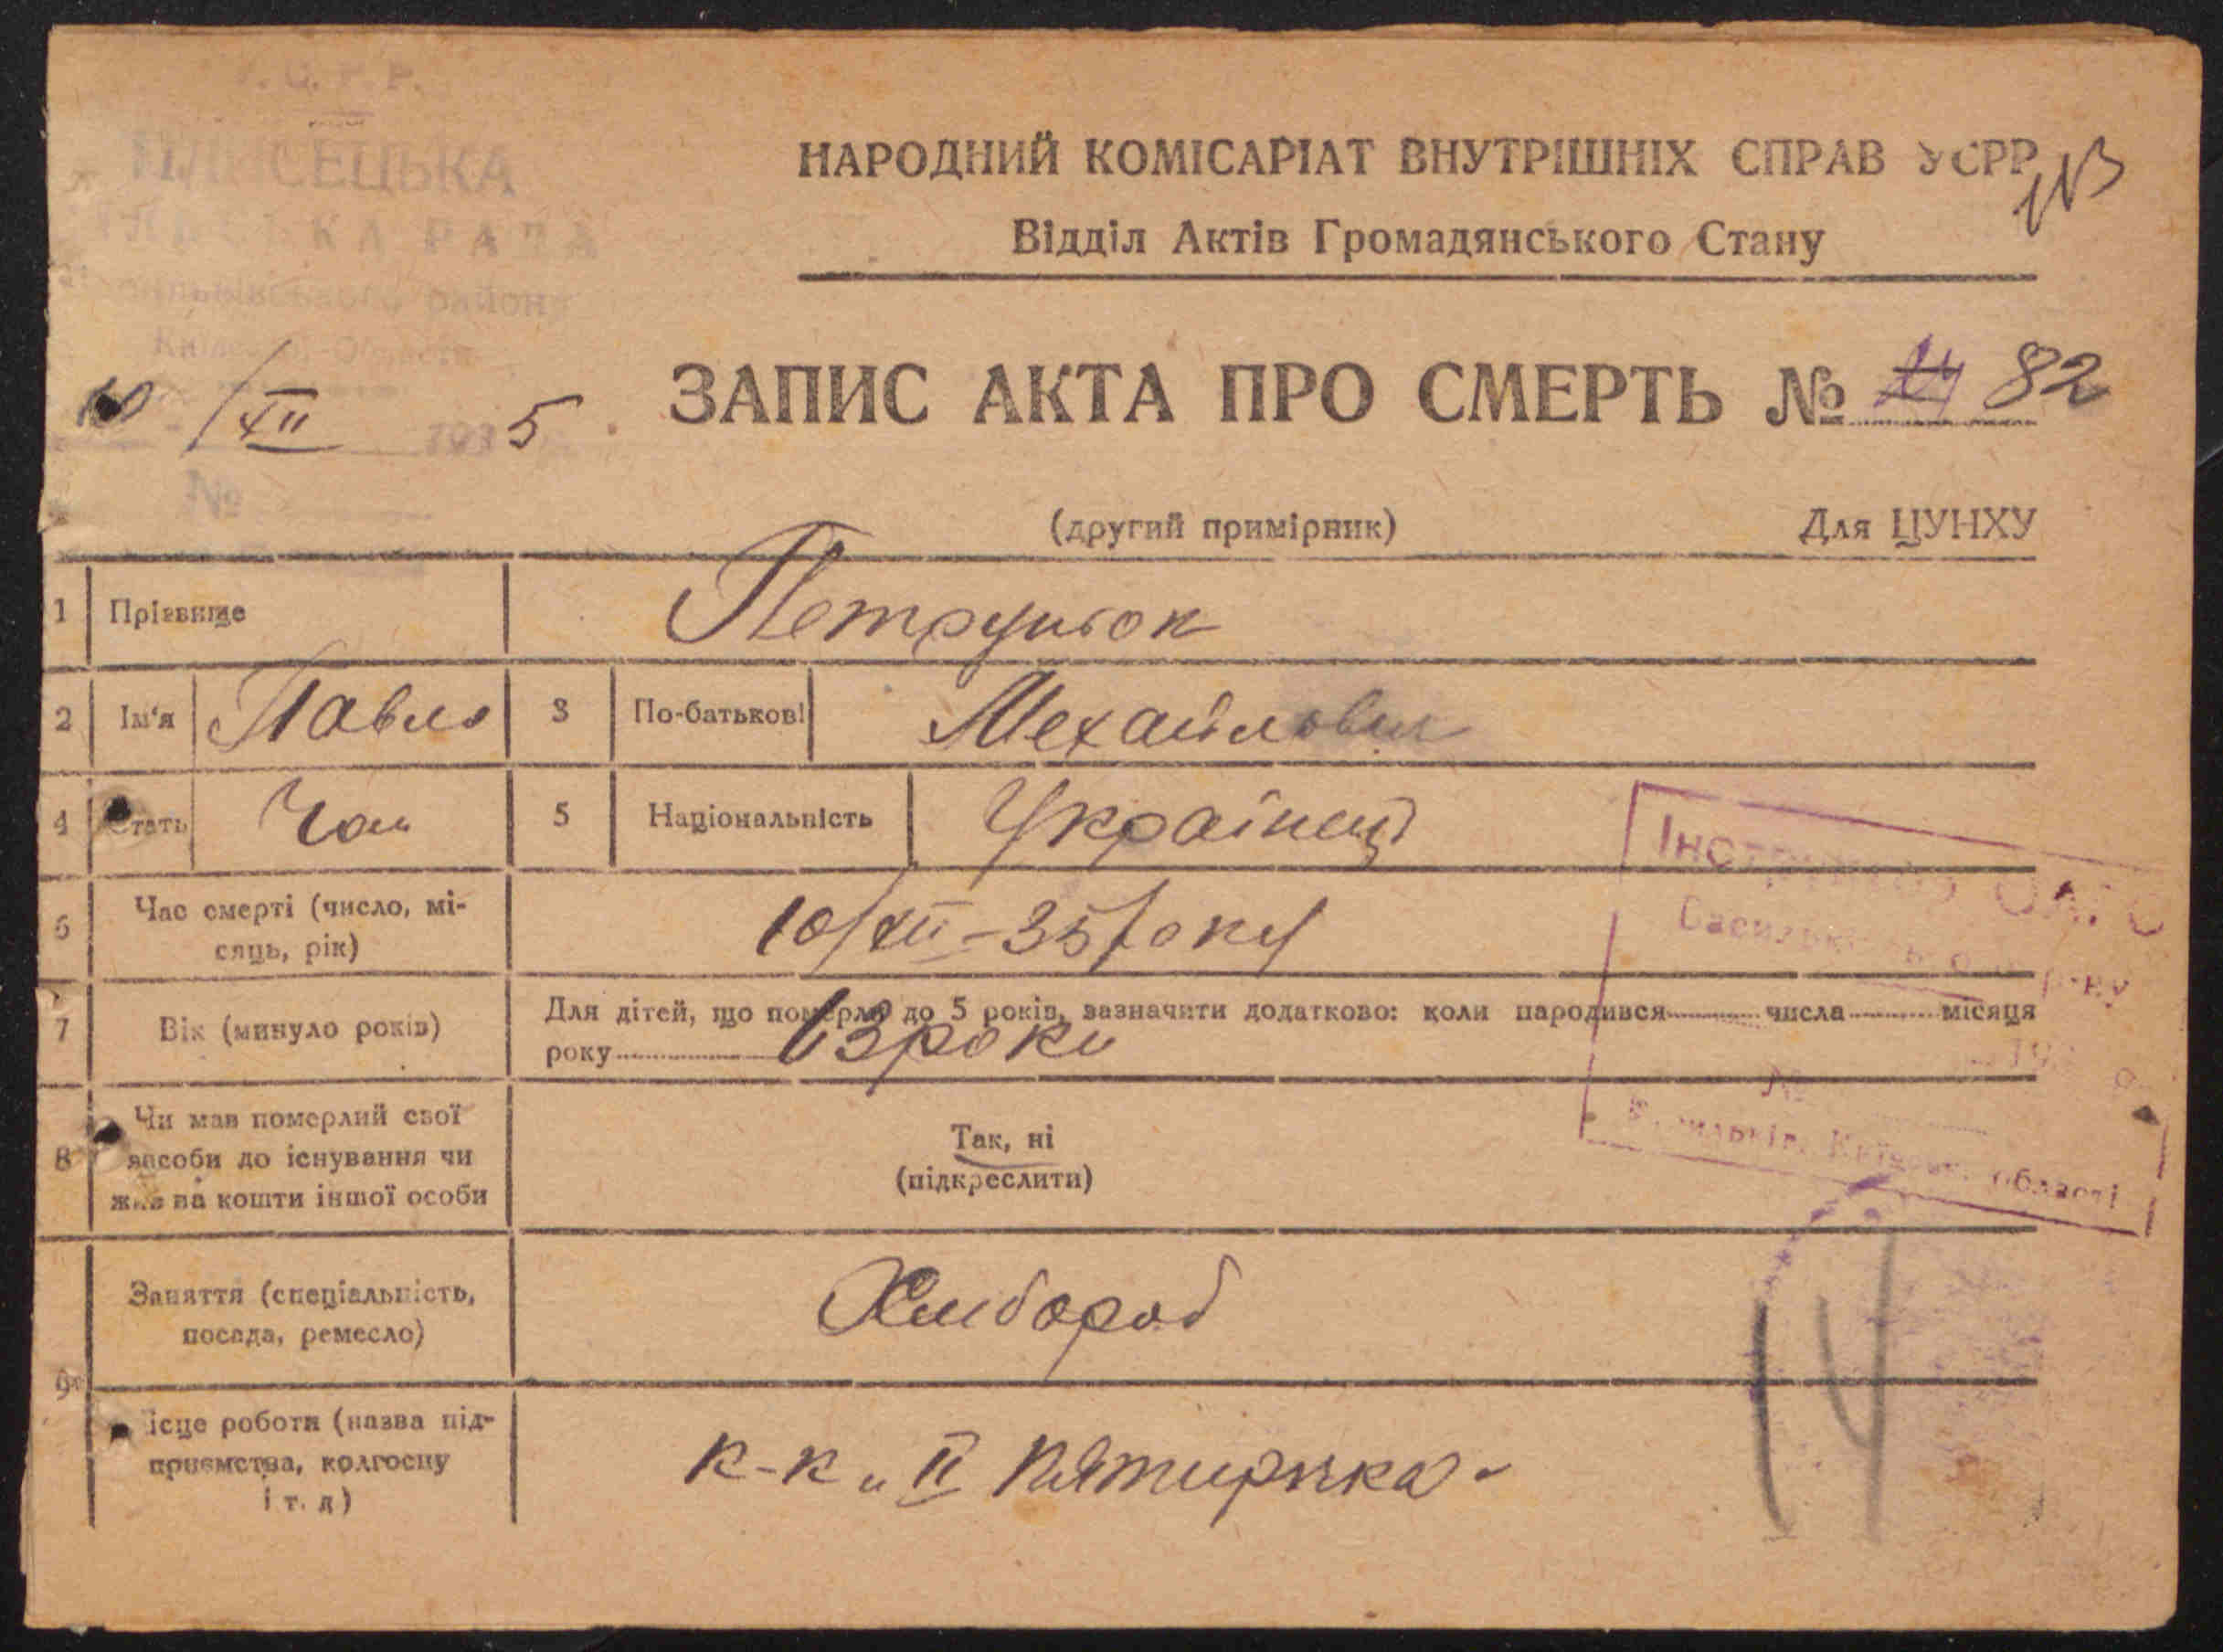 У.С.Р.Р.
СІЛЬСЬКА РАДА
району
НАРОДНИЙ КОМІСАРІАТ ВНУТРІШНІХ СПРАВ УСРР
Відділ Актів Громадянського Стану
10/XII 1935
ЗАПИС АКТА ПРО СМЕРТЬ № 82
№
(другий примірник) Для ЦУНХУ
1 Прізвище Петрунок
2 Ім'я Павло 3 По-батькові Мехайлович
4 Стать Чол 5 Національність Українец
6 Час смерті (число, мі-
сяць, рік) 10/XII-35 року
7 Вік (минуло років) Для дітей, що померли до 5 років, зазначити додатково: коли народився числа місяця
року 63 роки
8 Чи мав померлий свої
засоби до існування чи
жив на кошти іншої особи
Так, ні
(підкреслити)
9 Заняття (спеціальність,
посада, ремесло) Хлибороб
Місце роботи (назва під-
приємства, колгоспу
і т. д) К-К „ II Пятирічка"
Київської області
14